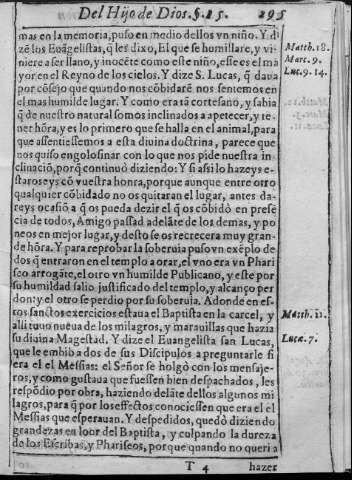 Del Hijo de Dios. §. 25. 295
mas en la memoria, puso en medio dellos vn niño. Y di
zē los Euāgelistas, q̄ les dixo, El que se humillare, y vi-
niere a ser llano, y inocēte como este niño, esse es el ma
yor en el Reyno de los cielos. Y dize S. Lucas, q̄ daua
por cōsejo que quando nos cōbidarē nos sentemos en
el mas humilde lugar. Y como era tā cortesano, y sabia
q̄ de nuestro natural somos inclinados a apetecer, y te-
ner hōra, y es lo primero que se halla en el animal, para
que assentiessemos a esta diuina doctrina, parece que
nos quiso engolosinar con lo que nos pide nuestra in
clinaciō, porq̄ continuò diziendo: Y si assi lo hazeys e-
staros eys cō vuestra honra, porque aunque entre otro
qualquier cōbidado no os quitaran el lugar, antes da-
reys ocasiō a q̄ os pueda dezir el q̄ os cōbidò en prese
cia de todos, Amigo passad adelāte de los demas, y po
neos en mejor lugar, y desto se os recrecera muy gran-
de hōra. Y para reprobar la soberuia puso vn exēplo de
dos q̄ entraron en el templo a orar, el vno era vn Phari
seo arrogāte, el otro vn humilde Publicano, y este por
su humildad salio justificado del templo, y alcanço per
don: y el otro se perdio por su soberuia. A donde en es-
tos sanctos exercicios estaua el Baptista en la carcel, y
alli tuuo nueua de los milagros, y marauillas que hazia
su diuina Magestad. Y dize el Euangelista san Lucas,
que le embiba dos de sus Discipulos a preguntarle si
era el el Messias: el Señor se holgò con los mensaje-
ros, y como gustaua que fuessen bien despachados, les
respōdio por obra, haziendo delāte dellos algunos mi
lagros, para q̄ por los effectos conociessen que era el el
Messias que esperauan. Y despedidos, quedò diziendo
grandezas en loor del Baptista, y culpando la dureza
de los Escribas, y Phariseos, porque quando no queria
T 4 hazer
Matth. 18.
Marc. 9.
Luc. 9. 14.
Matth. 11.
Lucæ. 7.